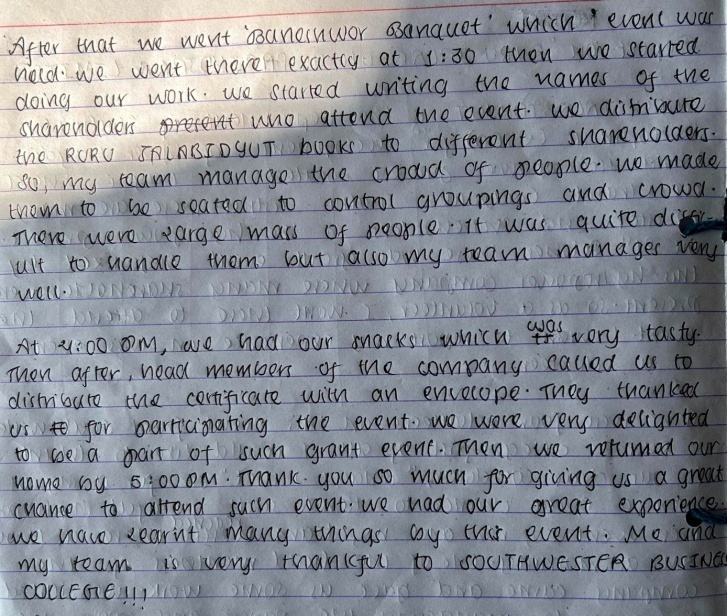 After that we went 'Baneshwor Banquet' which event was
held. we went there exactly at 1:30 then we started
doing our work. we started writing the names of the
shareholders present who attend the event. we distribute
the RURU JALABIDYUT books to different shareholders.
So, my team manage the crowd of people. we made
them to be seated to control groupings and crowd.
There were large mass of people. it was quite diffic-
ult to handle them but also my team manages very
well.
At 4:00 PM, we had our snacks which was very tasty.
Then after, head members of the company called us to
distribute the certificate with an envelope. They thanked
us to for participating the event. we were very delighted
to be a part of such grant event. Then we returned our
home by 5:00 PM. Thank you so much for giving us a great
chance to attend such event. we had our great experience.
we have learnt many things by this event. Me and
my team is very thankful to SOUTHWESTER BUSINES
COLLEGE!!!